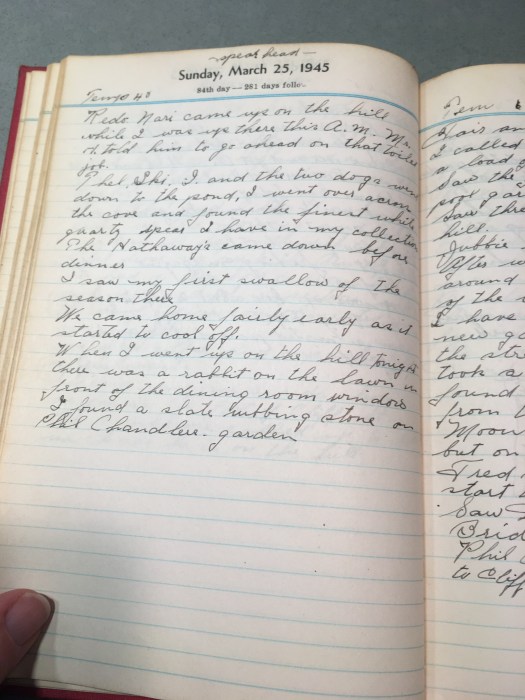 —spear head—
Sunday, March 25, 1945
84th day — 281 days follow
Temp 40
Redo Nari came up on the hill
while I was up there this A.M. Mr.
told him to go ahead on that
job.
Phel, I. and the two dogs went
down to the pond, I went over across
the cove and found the finest white
quartz spear I have in my collection
The Hathaways came down before
dinner
I saw my first swallow of the
season there
We came home fairly early as it
started to cool off.
When I went up on the hill tonight
there was a rabbit on the lawn in
front of the dining room window
I found a slate rubbing stone on
Phil Chandlers. garden
Tem
Fair an
I called
a load
Saw thi
poor gar
Saw thre
hill.
Jubbie
After w
around
of the
I have
new ga
the str
took a
found
from
Moon
but on
Fred
start
Saw
Brid
Phil
to Cliff